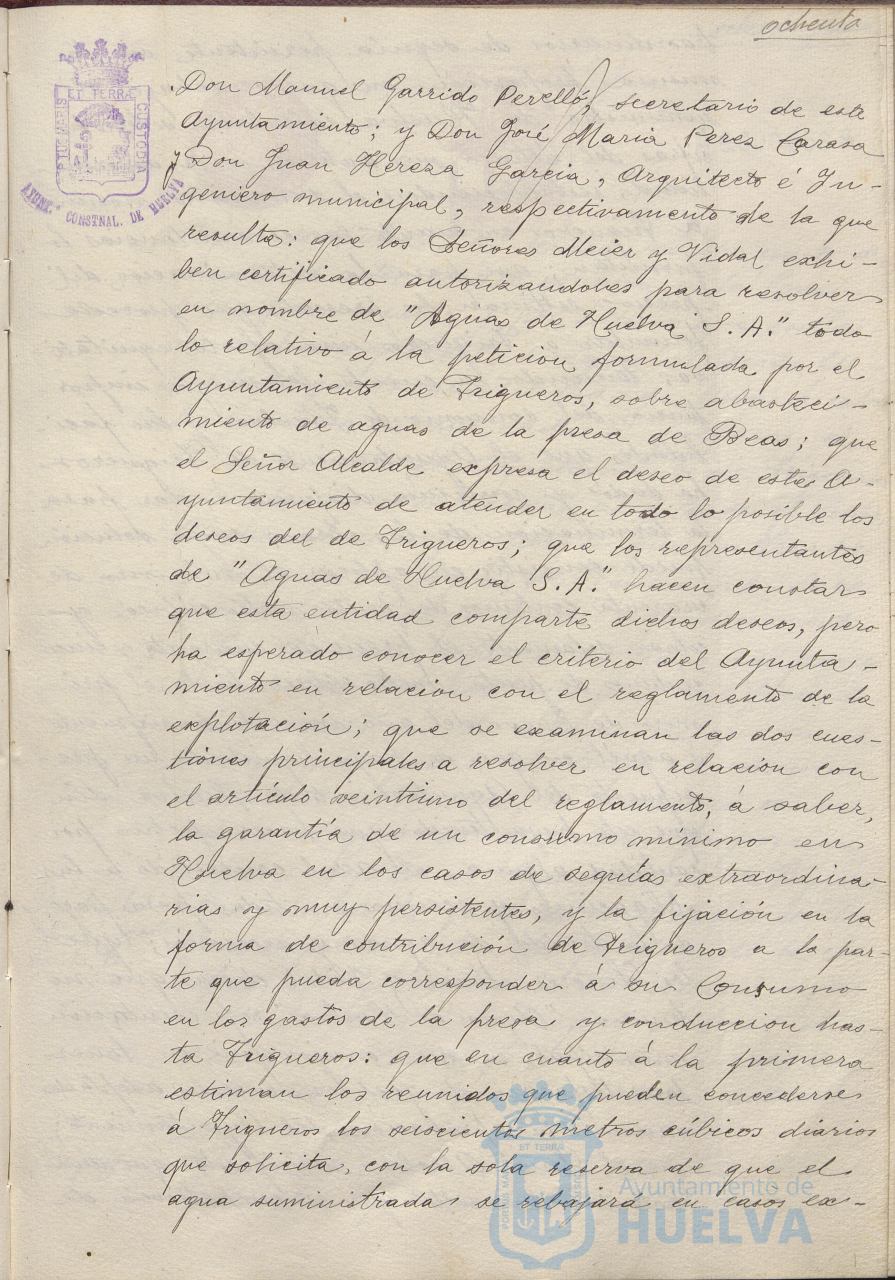 ochenta
Don Manuel Garrido Perelló, secretario de este
Ayuntamiento; y Don José Maria Perez Carasa
y Don Juan Hereza Garcia, Arquitecto é In-
geniero municipal, respectivamente de la que
resulta: que los Señores Meier y Vidal exhi-
ben certificado autorizandoles para resolver
en nombre de "Aguas de Huelva S.A." todo
lo relativo á la peticion formulada por el
Ayuntamiento de Trigueros, sobre abasteci-
miento de aguas de la presa de Beas; que
el Señor Alcalde expresa el deseo de este A-
yuntamiento de atender en todo lo posible los
deseos del de Trigueros; que los representantes
de "Aguas de Huelva S.A." hacen constar
que esta entidad comparte dichos deseos, pero
ha esperado conocer el criterio del Ayunta-
miento en relacion con el reglamento de la
explotación; que se examinan las dos cues-
tiones principales a resolver en relacion con
el artículo veintiuno del reglamento, á saber,
la garantía de un consumo mínimo en
Huelva en los casos de sequías extraordina-
rias y muy persistentes, y la fijación en la
forma de contribución de Trigueros a la par-
te que pueda corresponder á su Consumo
en los gastos de la presa y conduccion has-
ta Trigueros: que en cuanto á la primera
estiman los reunidos que pueden concederse
á Trigueros los seiscientos metros cúbicos diarios
que solicita, con la sola reserva de que el
agua suministrada se rebajará en casos ex-
PORTUS MARIS ET TERRÆ CUSTODIA
AYUNT.º CONSTNAL. DE HUELVA
Ayuntamiento de
HUELVA